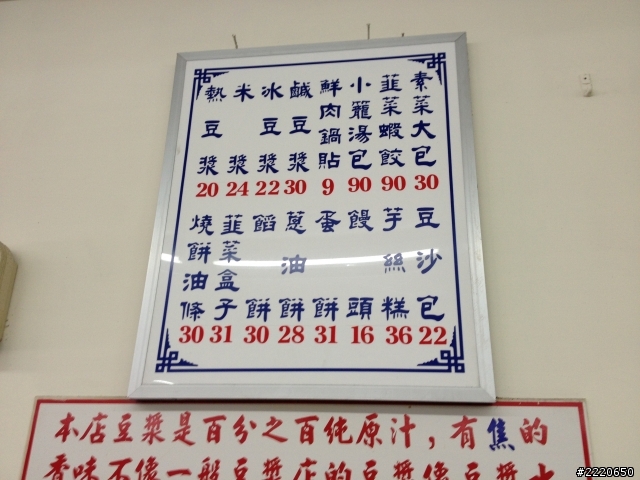 素菜大包 30
韮菜蝦餃 90
小籠湯包 90
鮮肉鍋貼 9
鹹豆漿 30
冰豆漿 22
米漿 24
熱豆漿 20
豆沙包 22
芋絲糕 36
饅頭 16
蛋餅 31
蔥油餅 28
餡餅 30
韮菜盒子 31
燒餅油條 30
本店豆漿是百分之百純原汁，有焦的
香味不像一般豆漿店的豆漿像豆漿
#2220650